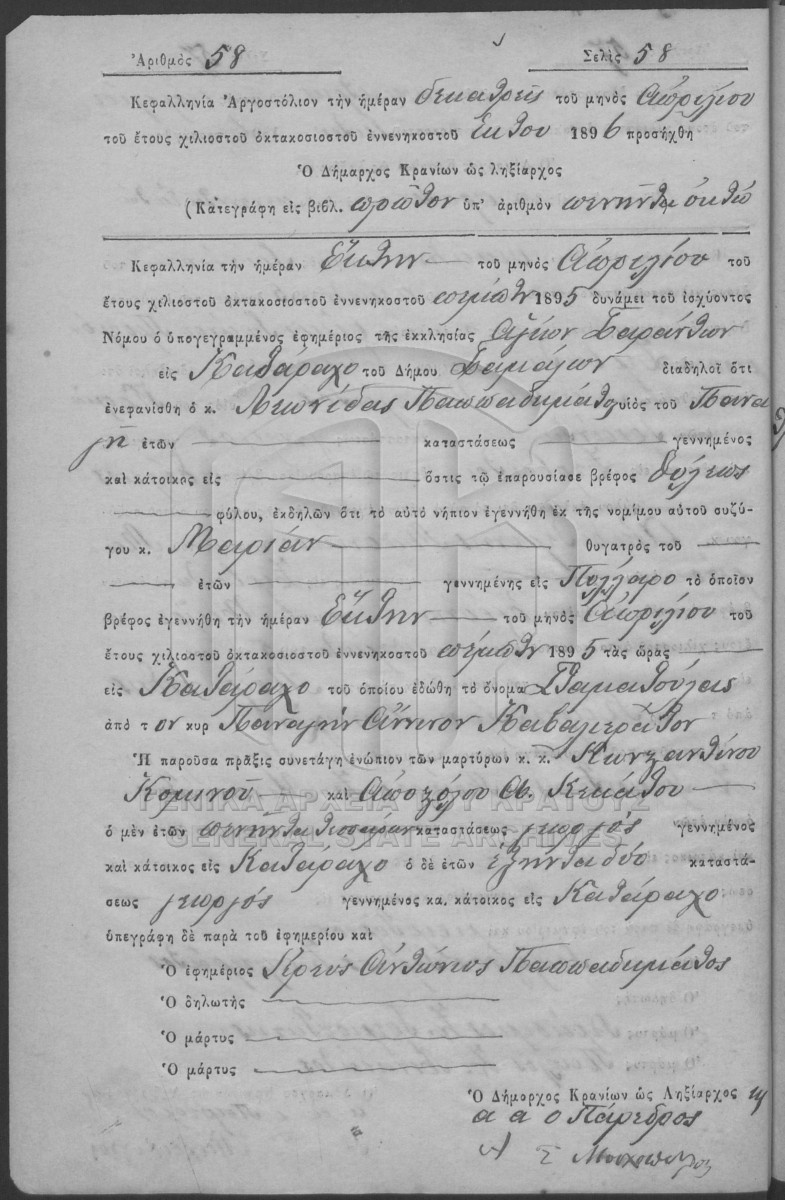 Ἀριθμὸς 58 Σελὶς 58
Κεφαλληνία Ἀργοστόλιον τὴν ἡμέραν δεκατρεῖς τοῦ μηνὸς Ἀπριλίου
τοῦ ἔτους χιλιοστοῦ ὀκτακοσιοστοῦ ἐννενηκοστοῦ ἕκτου 1896 προσήχθη
Ὁ Δήμαρχος Κρανίων ὡς ληξίαρχος
(Κατεγράφη εἰς βιβλ. πρῶτον ὑπ' ἀριθμὸν πενῆντα ὀκτώ
Κεφαλληνία τὴν ἡμέραν Ἕκτην τοῦ μηνὸς Ἀπριλίου τοῦ
ἔτους χιλιοστοῦ ὀκτακοσιοστοῦ ἐννενηκοστοῦ πέμπτου 1895 δυνάμει τοῦ ἰσχύοντος
Νόμου ὁ ὑπογεγραμμένος ἐφημέριος τῆς ἐκκλησίας Ἁγίων Σαράντων
εἰς Κατάραχο τοῦ Δήμου Σαμαίων διαδηλοῖ ὅτι
ἐνεφανίσθη ὁ κ. Λεωνίδας Παππαδημάτος υἱὸς τοῦ Πανα
γῆ ἐτῶν καταστάσεως γεννημένος
καὶ κάτοικος εἰς ὅστις τῷ ἐπαρουσίασε βρέφος θήλεως
φύλου, ἐκδηλῶν ὅτι τὸ αὐτὸ νήπιον ἐγεννήθη ἐκ τῆς νομίμου αὐτοῦ συζύ-
γου κ. Μαρίαν θυγατρὸς τοῦ
ἐτῶν γεννημένης εἰς τὸ ὁποῖον
βρέφος ἐγεννήθη τὴν ἡμέραν Ἕκτην τοῦ μηνὸς Ἀπριλίου τοῦ
ἔτους χιλιοστοῦ ὀκτακοσιοστοῦ ἐννενηκοστοῦ πέμπτου 1895 τὰς ὥρας
εἰς Κατάραχο τοῦ ὁποίου ἐδώθη τὸ ὄνομα Σταματούλαις
ἀπὸ τ ον κυρ Παναγὴν Ἄννινον Καβαλιεράτον
Ἡ παροῦσα πρᾶξις συνετάγη ἐνώπιον τῶν μαρτύρων κ. κ. Κωνσταντίνου
Κομινοῦ καὶ Ἀποστόλου Κεκάτου
ὁ μὲν ἐτῶν πενῆντα τεσσάρων καταστάσεως γεωργός γεννημένος
καὶ κάτοικος εἰς Κατάραχο ὁ δὲ ἐτῶν ἑξῆντα δύο καταστά-
σεως γεωργός γεννημένος κα. κάτοικος εἰς Κατάραχο
ὑπεγράφη δὲ παρὰ τοῦ ἐφημερίου καὶ
Ὁ ἐφημέριος Ἱερεὺς Ἀντώνιος Παππαδημάτος
Ὁ δηλωτὴς
Ὁ μάρτυς
Ὁ μάρτυς
Ὁ Δήμαρχος Κρανίων ὡς Ληξίαρχος
α α ο Πάρεδρος
ΓΕΝΙΚΑ ΑΡΧΕΙΑ ΤΟΥ ΚΡΑΤΟΥΣ
GENERAL STATE ARCHIVES